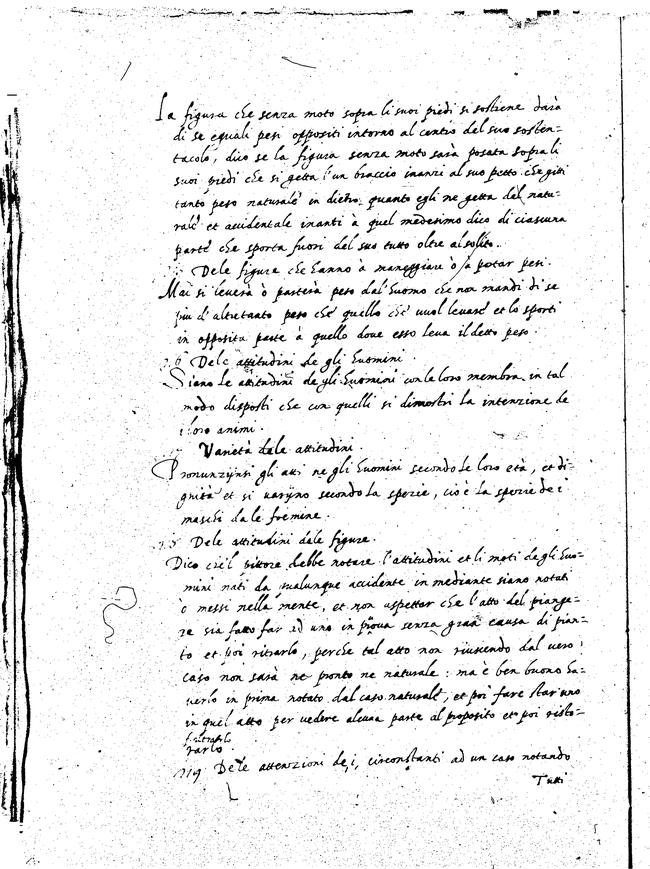 La figura che senza moto sopra li suoi piedi si sostiene darà
di se eguali pesi oppositi intorno al centro del suo sosten=
tacolo, dico se la figura senza moto sarà posata sopra li
suoi piedi che si getta l'un braccio inanzi al suo petto che gitti
tanto peso naturale in dietro quanto egli ne getta del natu-
rale et accidentale inanti à quel medesimo dico di ciascuna
parte che sporta fuori del suo tutto oltre al solito.
Dele figure che hanno à maneggiare ò a portar pesi.
Mai si leverà ò porterà peso dal'huomo che non mandi di se
piu d'altretanto peso che quello che vuol levare et lo sporti
in opposita parte à quello dove esso leva il detto peso.
Dele attitudini de gli huomini.
Siano le attitudini de gli huomini con le loro membra in tal
modo disposti che con quelli si dimostri la intenzione de
i loro animi.
Varietà dele attitudini.
Pronunzijnsi gli atti ne gli huomini secondo le loro età, et di-
gnità et si varijno secondo la spezie, cioè la spezie de i
maschi da le foemine.
Dele attitudini dele figure.
Dico che'l pittore debbe notare l'attitudini et li moti de gli huo=
mini nati da qualunque accidente in mediante siano notati
ò messi nella mente, et non aspettar che l'atto del piange-
re sia fatto far ad uno in prova senza gran causa di pian-
to et poi ritrarlo, perche tal atto non riuscendo dal vero
caso non sarà ne pronto ne naturale: ma è ben buono ha-
verlo in prima notato dal caso naturale, et poi fare star uno
in quel atto per vedere alcuna parte al proposito et poi
ritrarlo
219 Dele attenzioni de, i, circonstanti ad un caso notando
Tutti